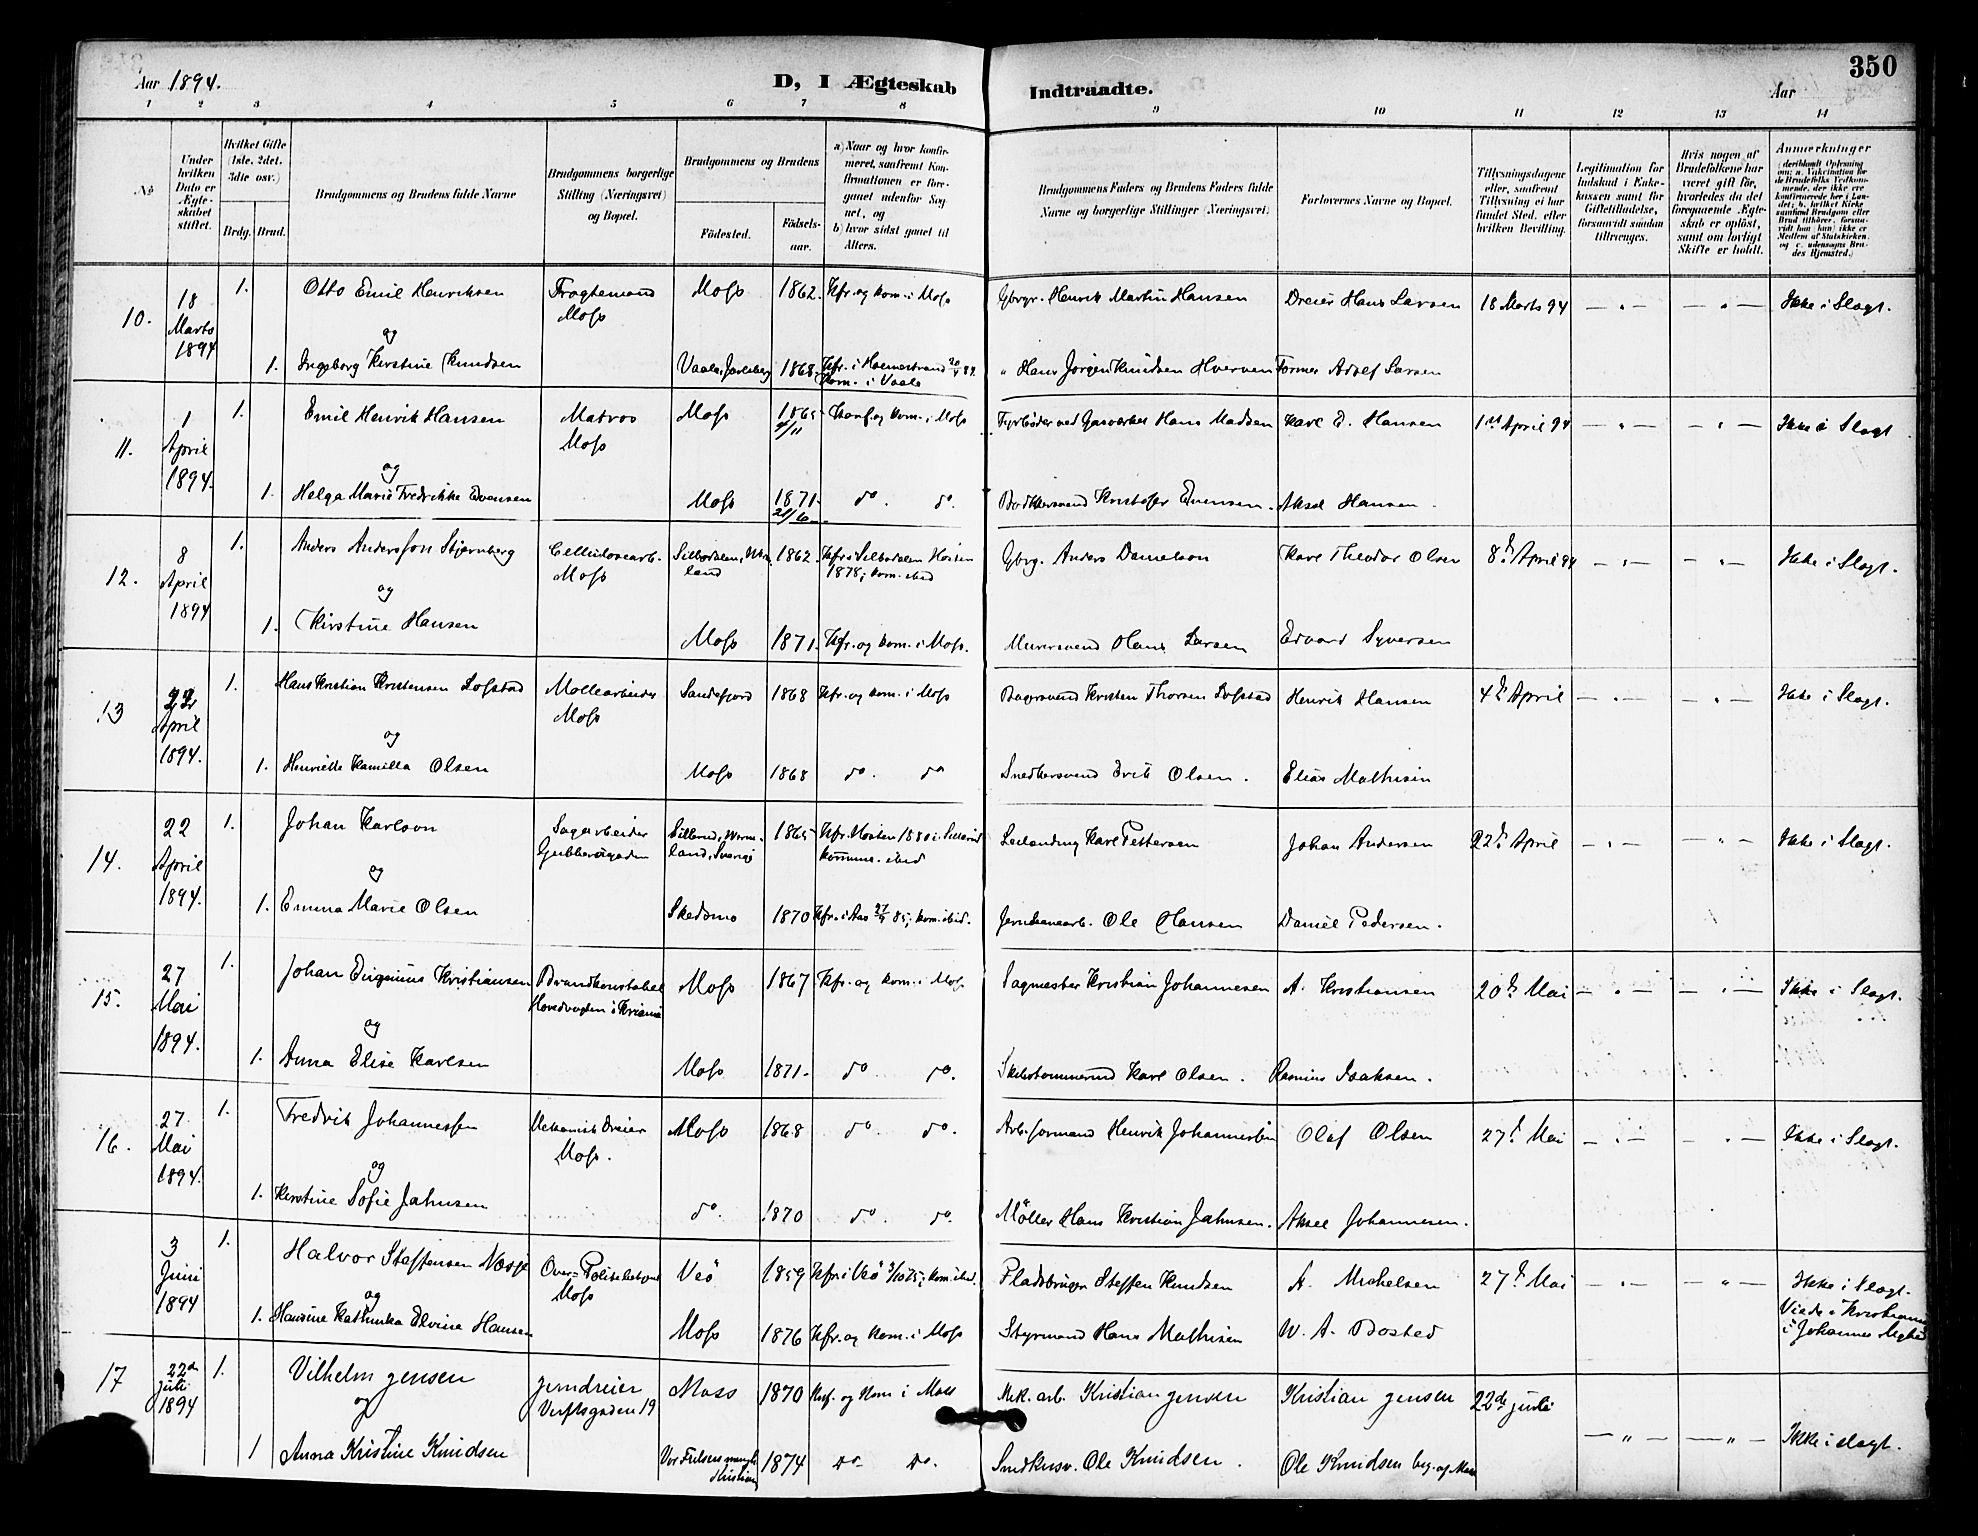 350
Aar 1894.
D, I Ægteskab
Indtraadte.
Aar
1 2 3 4 5 6 7 8 9 10 11 12 13 14
No
Under hvilken Dato er Ægteskabet stiftet.
Hvilket Gifte (1ste, 2det, 3die osv.)
Brdg. Brud.
Brudgommens og Brudens fulde Navne
Brudgommens borgerlige Stilling (Næringsvei) og Bopæl.
Brudgommens og Brudens
Fødested.
Fødselsaar.
a) Naar og hvor konfirmeret, saafremt Konfirmationen er foregaaet udenfor Sognet, og
b) hvor sidst gaaet til Alters.
Brudgommens Faders og Brudens Faders fulde Navne og borgerlige Stillinger (Næringsvei)
Forlovernes Navne og Bopæl.
Tillysningsdagene eller, saafremt Tillysning ei har fundet Sted, efter hvilken Bevilling.
Legitimation for Indskud i Enkekassen samt for Giftetilladelse, forsaavidt saadan tiltrænges.
Hvis nogen af Brudefolkene har været gift før, hvorledes da det foregaaende Ægteskab er opløst, samt om lovligt Skifte er holdt.
Anmærkninger (deriblandt Oplysning om: a. Vakcination for de Brudefolks Vedkommende, der ikke ere konfirmerede her i Landet; b. hvilket Kirkesamfund Brudgom eller Brud tilhører, forsaavidt han (hun) ikke er Medlem af Statskirken, og c. udensogns Brudes Hjemsted.)
10. 18 Marts 1894 1. Otto Emil Henriksen Fragtemand Moss Moss 1862. Kfr. og kom. i Moss Gbrgr. Henrik Martin Hansen Dreier Hans Larsen 18 Marts 94 — „ — — „ — Ikke i Slægt.
og
1. Ingeborg Kirstine Knudsen Vaale, Jarlsberg 1868 Kfr. i Holmestrand Kom. i Vaale „ Hans Jørgen Knudsen Hverven Former Adolf Larsen
11. 1 April 1894. 1. Emil Henrik Hansen Matros Moss Moss 1865 Konf. og kom. i Moss Fyrbøder ved Gasverket Hans Madsen Karl E. Hansen 1ste April 94 — „ — — „ — Ikke i Slægt
og
1. Helga Marie Fredrikke Evensen Moss 1871 21/6 do. do. Bødkersvend Kristofer Evensen. Aksel Hansen
12. 8 April 1894 1. Anders Andersson Stjernberg Cellulosearb. Moss land 1862. 1878; kom. ibid Gbrg. Anders Danielson Karl Theodor Olsen 8de April 94 — „ — — „ — Ikke i Slægt.
og
1. Kirstine Hansen Moss 1871. Kfr. og kom. i Moss. Murersvend Hans Larsen Edvard Syversen
13 22 April 1894. 1. Hans Kristian Kristensen Lofstad Møllearbeider Moss Sandefjord 1868 Kfr. og kom. i Moss Bagersvend Kristen Thorsen Lofstad Henrik Hansen April — „ — — „ — Ikke i Slægt.
og
1. Henriette Kamilla Olsen Moss 1868 do. do Snedkersvend Erik Olsen. Elias Mathisen
14. 22 April 1894. 1. Johan Karlson Sagarbeider Gubberøgaden Sillerud, Wermland, Sverige 1865 Kfr. Høsten 1880 i Sillerud kommun. ibid Karl Pettersen Johan Andersen 22de April — „ — — „ — Ikke i Slægt.
og
1. Emma Marie Olsen Skedsmo 1870 Kfr. i Aas 27/9 85; kom. ibid. Jernbanearb. Ole Hansen Daniel Pedersen.
15. 27 Mai 1894. 1. Johan Eugenius Kristiansen Brandkonstabel Hovedvagten i Kriania Moss 1867 Kfr. og kom. i Moss Sagmester Kristian Johannesen A. Kristiansen 20de Mai — „ — — „ — Ikke i Slægt.
og
1. Anna Elise Karlsen Moss 1871. do do. Skibstømmermd Karl Olsen. Rasmus Isaksen.
16. 27 Mai 1894. 1. Fredrik Johannessen Mekanisk Dreier Moss. Moss 1868 do. do. Arb.formand Henrik Johannessen Olaf Olsen 27de Mai — „ — — „ — Ikke i Slægt.
og
1. Kirstine Sofie Jahnsen do. 1870 do. do. Møller Hans Kristian Jahnsen. Aksel Johannesen.
3 Juni 1894 1. Halvor Steffensen Næsje Over-Politibetjent Moss Veø 1859 Kfr. i Veø 3/10 75; kom. ibid. Pladsbruger Steffen Knudsen A. Michelsen 27de Mai — „ — — „ — Ikke i Slægt. Viede i Kristiania i Johannes Mgh
og
1. Hansine Kathinka Elvine Hansen Moss 1876 Kfr. og kom. i Moss Styrmand Hans Mathisen W. A. Bosted
17 22de juli 1894 1. Vilhelm Jensen Jerndreier Verftsgaden 19 Moss 1870 Knf. og kom i Moss Mek. arb. Kristian Jensen Kristian Jensen 22de juli
og
1 Anna Kristine Knudsen Vor Frelsers mengh. Kristiania 1874 do. do. Snedkersv. Ole Knudsen. Ole Knudsen beg. af Moss — „ — — „ — Ikke i slægt.